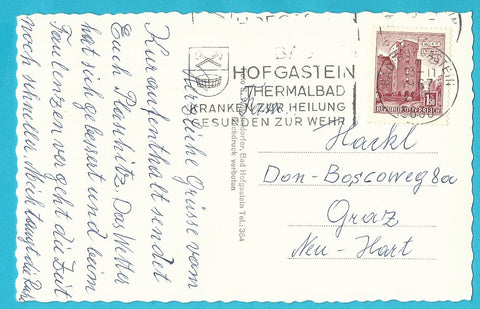 Herzliche Grüsse vom
Kuraufenthalt sendet
Euch Planhitz. Das Wetter
hat sich gebessert und beim
Faulenzen vergeht die Zeit
noch schneller. Mich langt die Ruhe
BAD
HOFGASTEIN
THERMALBAD
KRANKEN ZUR HEILUNG
GESUNDEN ZUR WEHR
Bad Hofgastein Tel. 364
Nachdruck verboten
REPUBLIK ÖSTERREICH
Hackl
Don-Boscoweg 8a
Graz
Neu-Hart